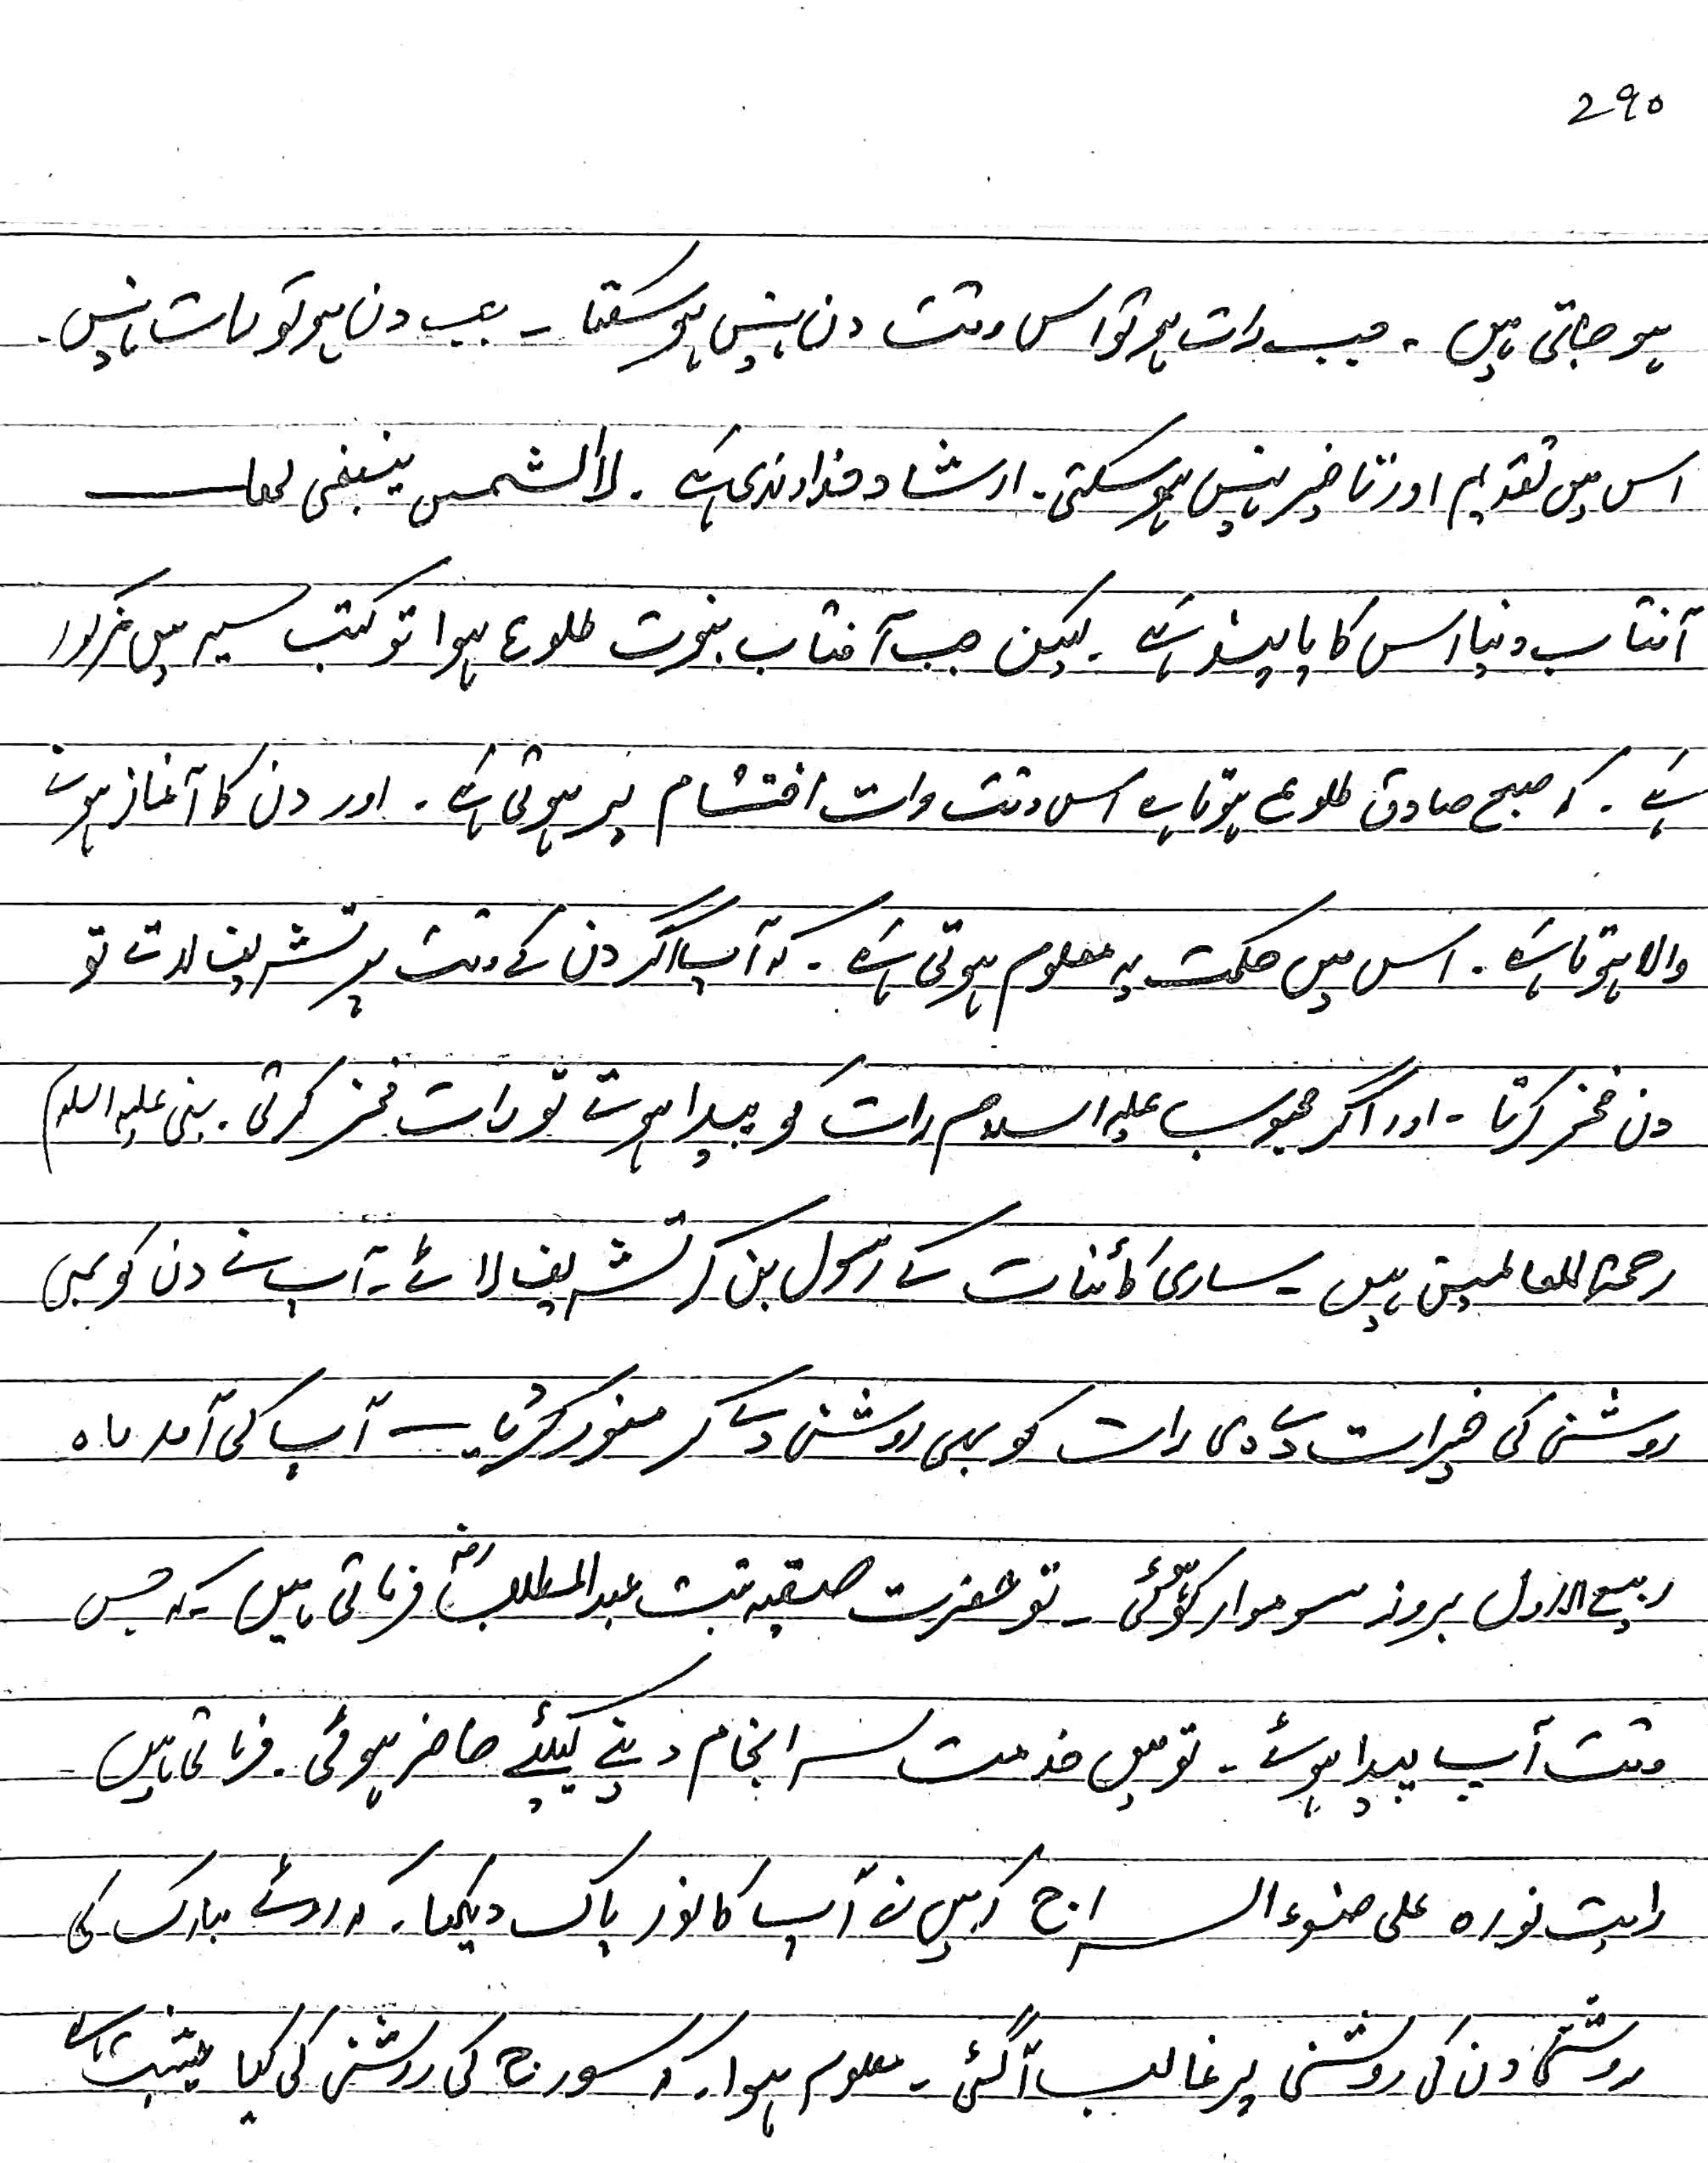 290
ہو جاتی ہیں ۔ جب رات ہو تو اس وقت دن نہیں ہو سکتا ۔ جب دن ہو تو رات نہیں ۔
اس میں تقدیم اور تاخیر نہیں ہو سکتی ۔ ارشاد خداوندی ہے ۔ لا الشمس ینبغی لھا
آفتاب دنیا اس کا پابند ہے ۔ لیکن جب آفتاب نبوت طلوع ہوا تو کتب سیر میں مذکور
ہے ۔ کہ صبح صادق طلوع ہوتا ہے اس وقت رات اختتام پر ہوتی ہے ۔ اور دن کا آغاز ہونے
والا ہوتا ہے ۔ اس میں حکمت یہ معلوم ہوتی ہے ۔ کہ آپ اگر دن کے وقت پر تشریف لاتے تو
دن فخر کرتا ۔ اور اگر محبوب علیہ السلام رات کو پیدا ہوتے تو رات فخر کرتی ۔ نبی علیہ السلام
رحمۃ للعالمین ہیں ۔ ساری کائنات کے رسول بن کر تشریف لائے ۔ آپ نے دن کو بھی
روشنی کی خیرات دے دی رات کو بھی روشنی دے کر منور کر دیا ۔ آپ کی آمد ماہ
ربیع الاول بروز سوموار کو ہوئی ۔ تو حضرت صفیہ بنت عبدالمطلب رضہ فرماتی ہیں ۔ کہ جس
وقت آپ پیدا ہوئے ۔ تو میں خدمت سر انجام دینے کیلئے حاضر ہوئی ۔ فرماتی ہیں ۔
رایت نورہ علی ضوء السراج کہ میں نے آپ کا نور پاک دیکھا ۔ کہ روئے مبارک کی
روشنی دن کی روشنی پر غالب آ گئی ۔ معلوم ہوا ۔ کہ سورج کی روشنی کی کیا حیثیت ہے